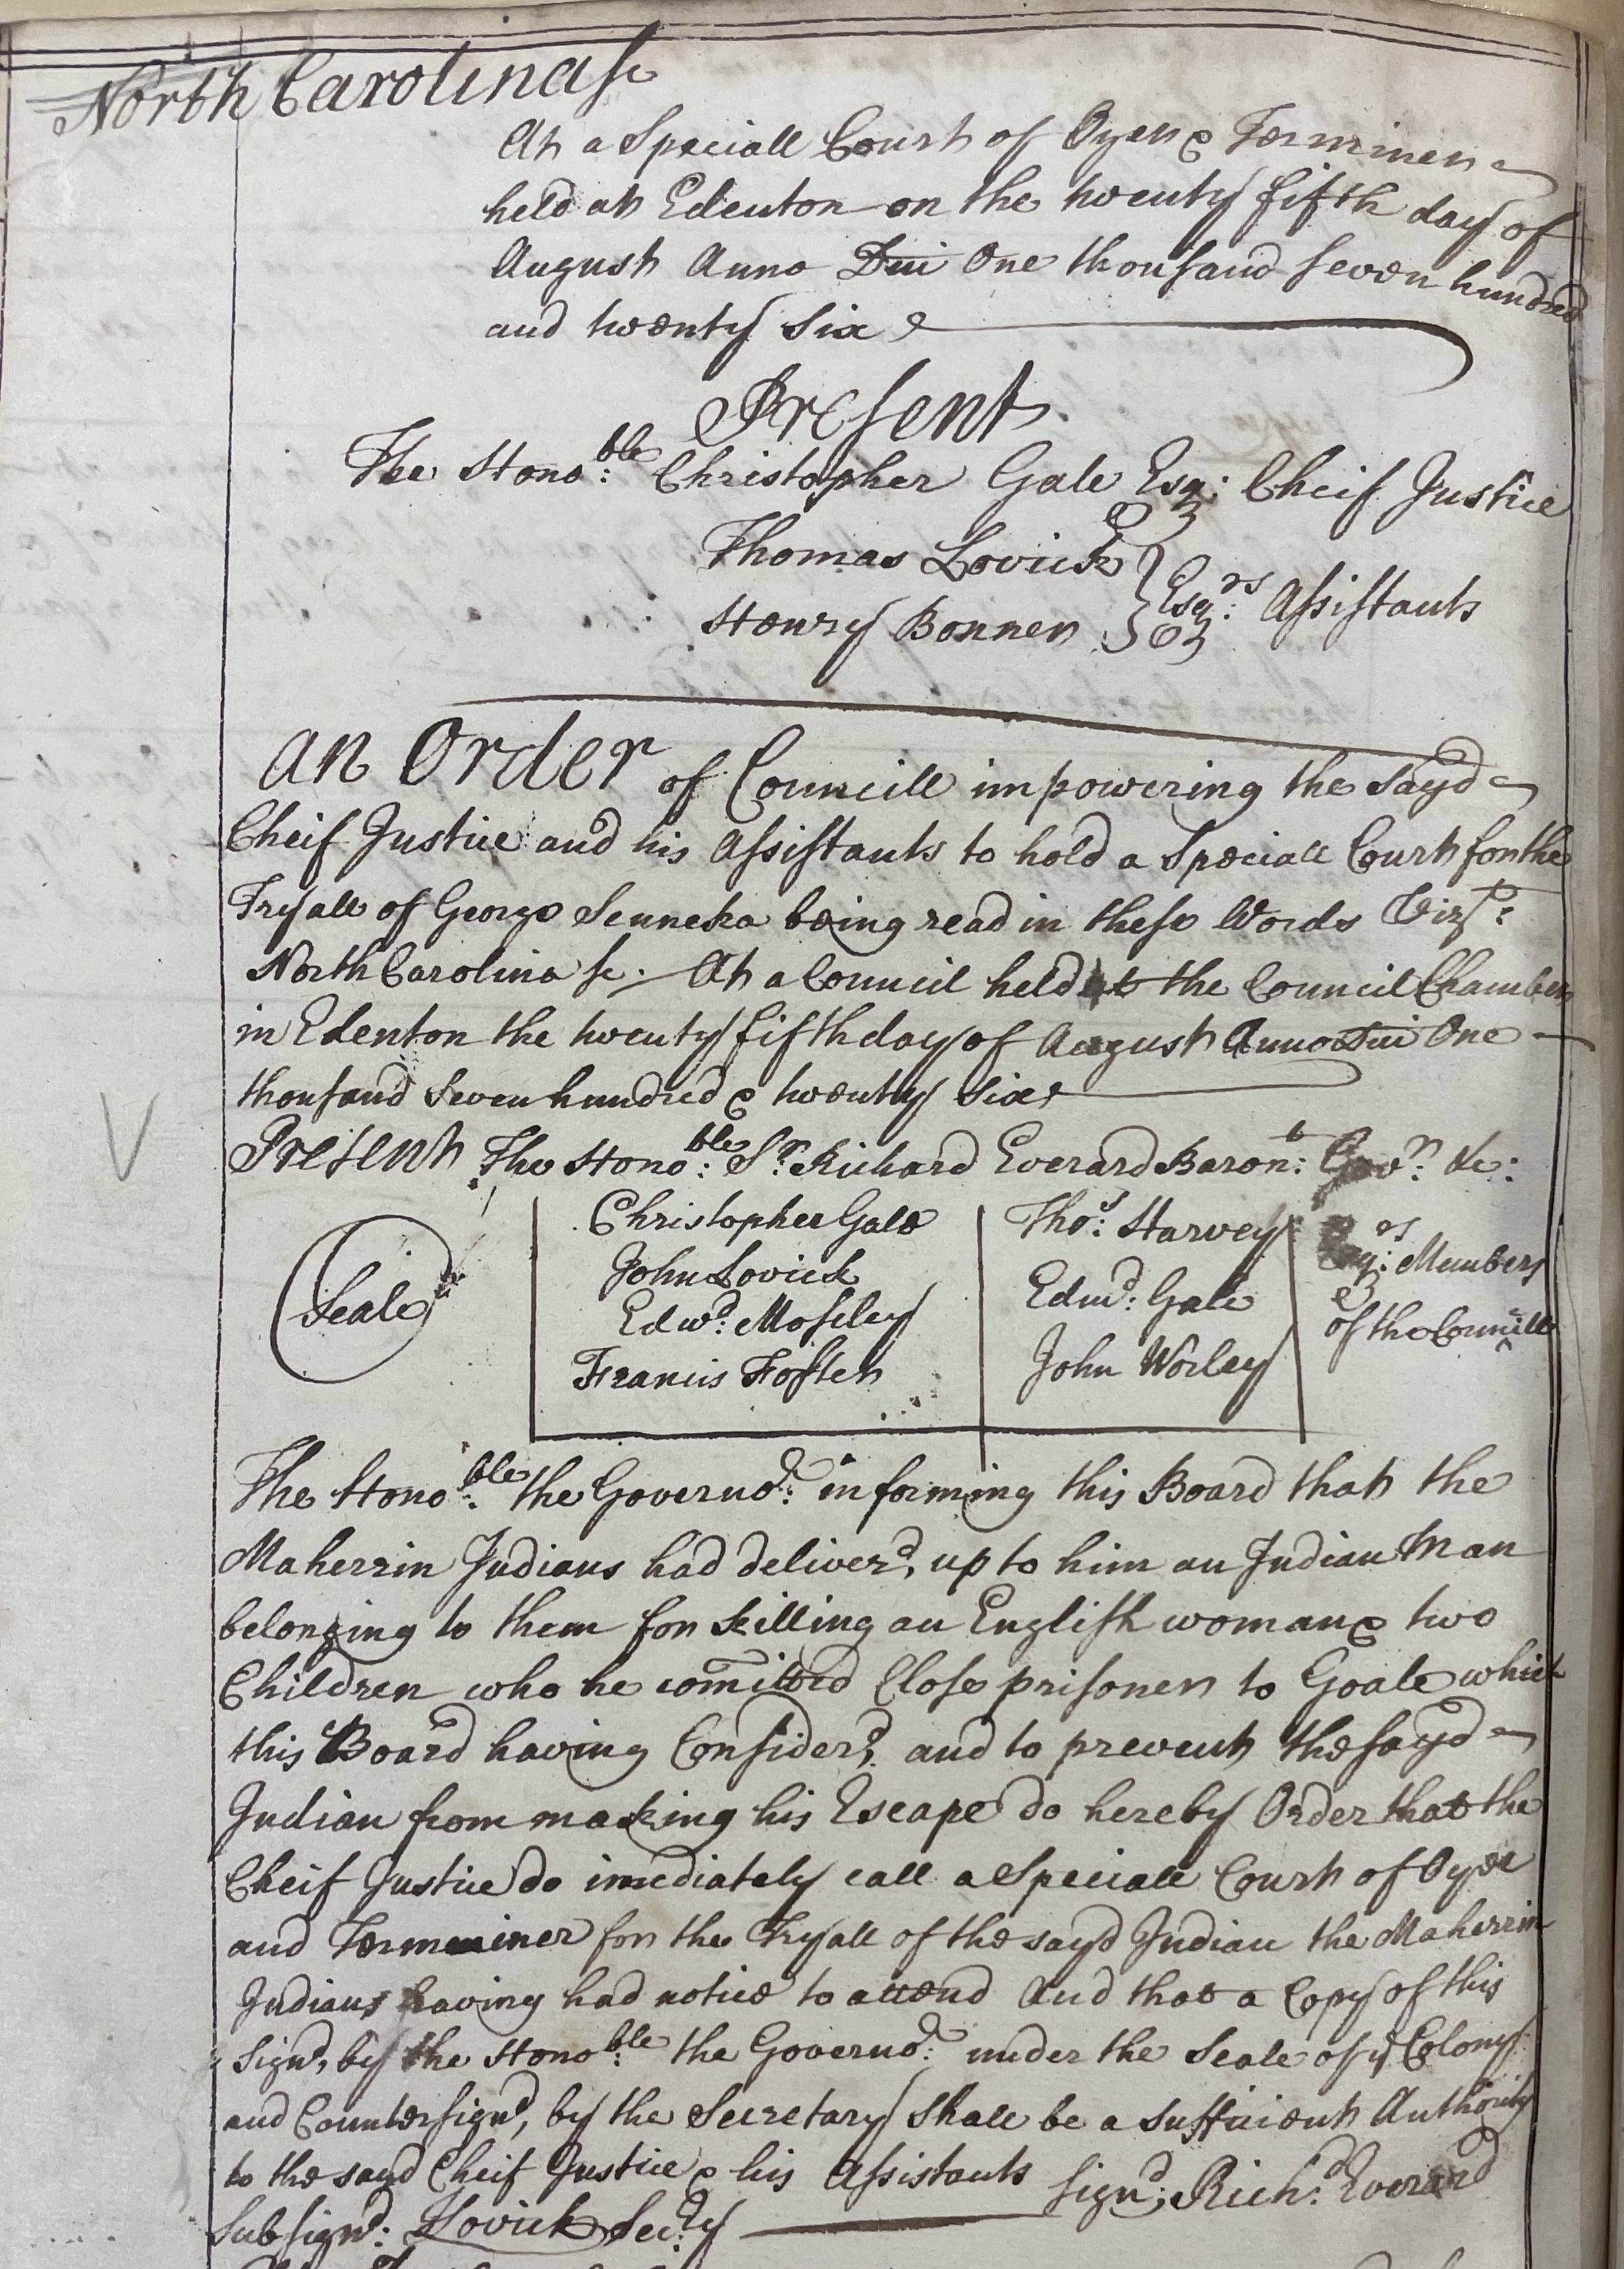 North Carolina sc
At a Speciall Court of Oyer & Terminer
held at Edenton on the twenty fifth day of
August Anno Dni One thousand seven hundred
and twenty six
Present
The Hono:ble Christopher Gale Esq: Cheif Justice
Thomas Lovick
Henry Bonner } Esq:rs Assistants
An Order of Councill impowering the sayd
Cheif Justice and his Assistants to hold a Speciall Court for the
Tryall of George Senneka being read in these Words Vizt:
North Carolina sc. At a Council held at the Council Chamber
in Edenton the twenty fifth day of August Anno Dni One
thousand seven hundred & twenty six
Present The Hono:ble Sr. Richard Everard Baron:t Govr: &c:
Seale
Christopher Gale
John Lovick
Edwd: Moseley
Francis Foster
Tho:s Harvey
Edmd: Gale
John Worley
Esq:rs Members
of the Councill
The Hono:ble the Governor: informing this Board that the
Maherrin Indians had deliverd, up to him an Indian Man
belonging to them for killing an English woman & two
Children who he comitted Close prisoner to Goale which
this Board having Considerd, and to prevent the sayd
Indian from making his Escape do hereby Order that the
Cheif Justice do imediately call a Speciall Court of Oyer
and Terminer for the Tryall of the sayd Indian the Maherrin
Indians having had notice to attend And that a Copy of this
Signd, by the Hono:ble the Governor: under the Seale of ye Colony
and Countersignd, by the Secretary shall be a sufficient Authority
to the sayd Cheif Justice & his Assistants Signd; Richd: Everard
Subsignd: Lovick Sec:ry